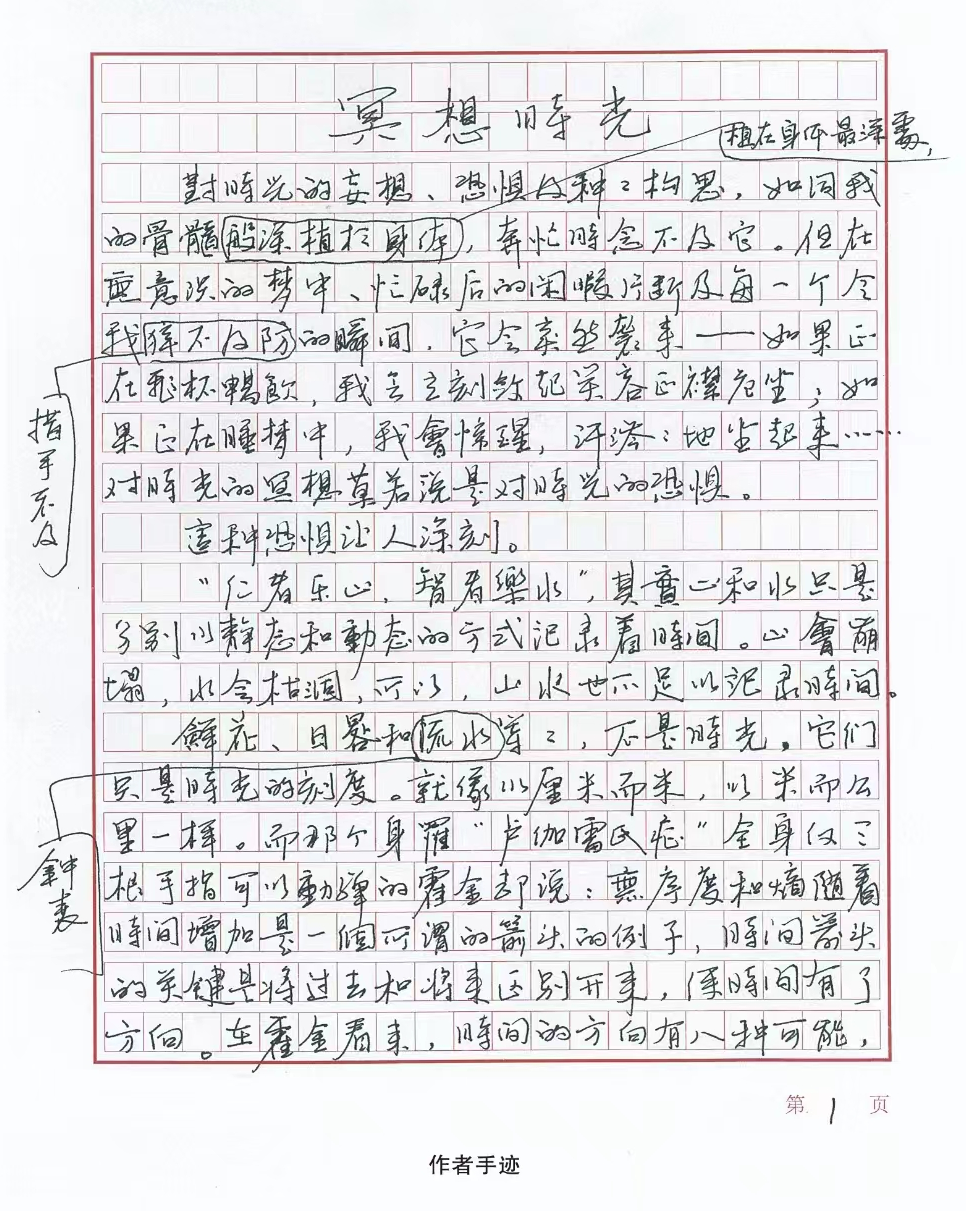 冥想時光
植在身体最深處，
對時光的妄想、恐惧及种々构思，如同我
的骨髓般深植於身体，奔忙時念不及它。但在
無意识的梦中、忙碌后的闲暇片断及每一个令
我猝不及防的瞬间，它会突然襲来——如果正
在飛杯暢飲，我会立刻敛起笑容正襟危坐；如
果正在睡梦中，我會惊醒，汗涔々地坐起来……
措手不及
对時光的冥想莫若说是对時光的恐惧。
這种恐惧让人深刻。
“仁者乐山，智者樂水”，其實山和水只是
分别以静态和動态的方式记录着時间。山會崩
塌，水会枯涸，可以，山水也不足以记录時间。
鲜花、日晷和流水等々，不是時光，它们
只是時光的刻度。就像以厘米而米，以米而公
里一样。而那个身罹“卢伽雷氏症”全身仅三
鈡表
根手指可以動弹的霍金却说：無序度和熵随着
時间增加是一個所谓的箭头的例子，時间箭头
的关鍵是将过去和将来区别开来，使時间有了
方向。在霍金看来，時间的方向有八种可能，
第1页
作者手迹